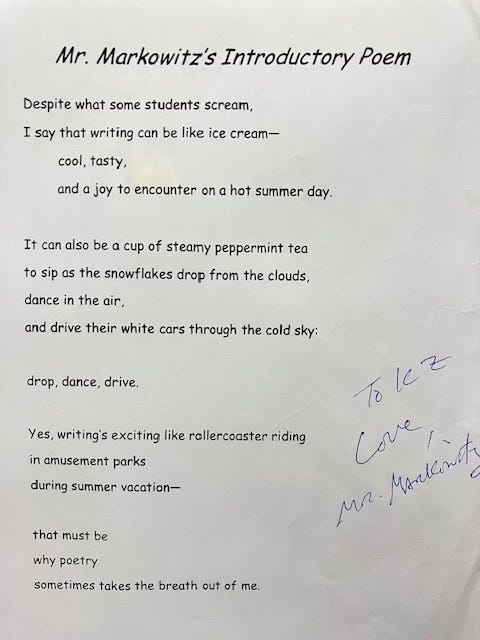 Mr. Markowitz's Introductory Poem
Despite what some students scream,
I say that writing can be like ice cream—
cool, tasty,
and a joy to encounter on a hot summer day.
It can also be a cup of steamy peppermint tea
to sip as the snowflakes drop from the clouds,
dance in the air,
and drive their white cars through the cold sky:
drop, dance, drive.
Yes, writing's exciting like rollercoaster riding
in amusement parks
during summer vacation—
that must be
why poetry
sometimes takes the breath out of me.
To KZ
Love,
Mr. Markowitz